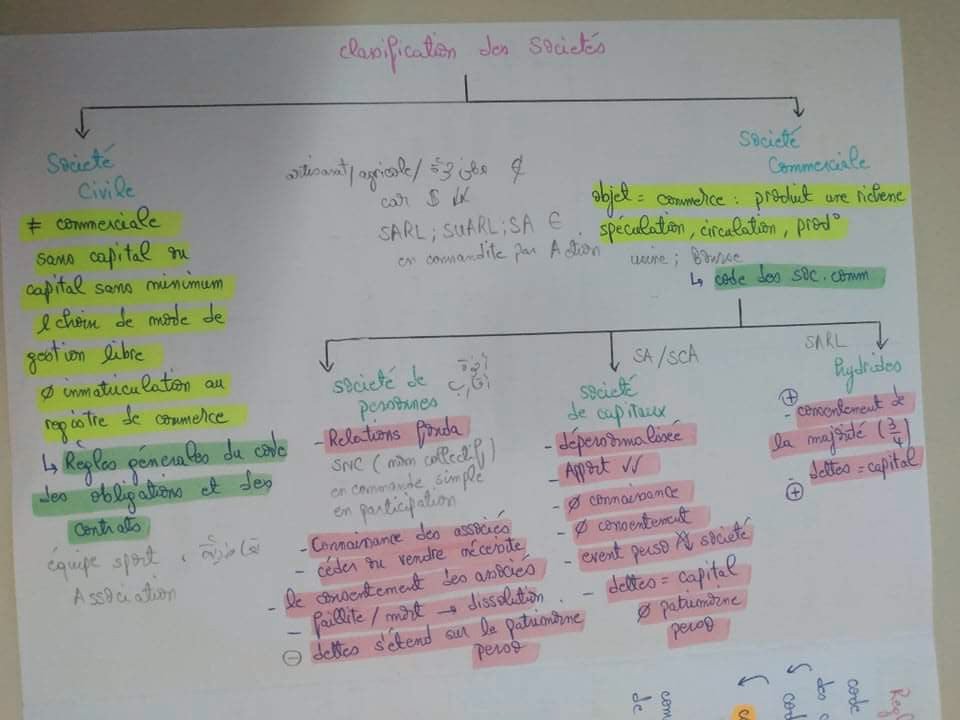 classification des Societés
Societé
Civile
≠ commerciale
sans capital ou
capital sans minimum
choin de mode de
gestion libre
∅ inmatriculation au
registre de commerce
↳ Règles générales du code
des obligations et des
contrats
équipe sport ,
Association
artisanat/agricole/
car $
SARL ; SUARL ; SA ∈
en commandite par Action
Societé
Commerciale
objet = commerce : produit une richene
spéculation, circulation, prod°
usine ; Bourse
↳ code des soc. comm
societé de
personnes
- Relations fonda
SNC (nom collectif)
en commande simple
en participation
- Connaissance des associés
- céder ou vendre nécessite
- le consentement des associés
- faillite / mort → dissolution.
- dettes s'étend sur le patrimoine
perso
SA/SCA
societé
de capitaux
- dépersonnalisée
- Apport ✓✓
- ∅ connaissance
- ∅ consentement
- event perso societé
- dettes = capital
∅ patrimoine
perso
SARL
hydrides
⊕
- consentement de
la majorité (3/4)
- dettes = capital
⊕